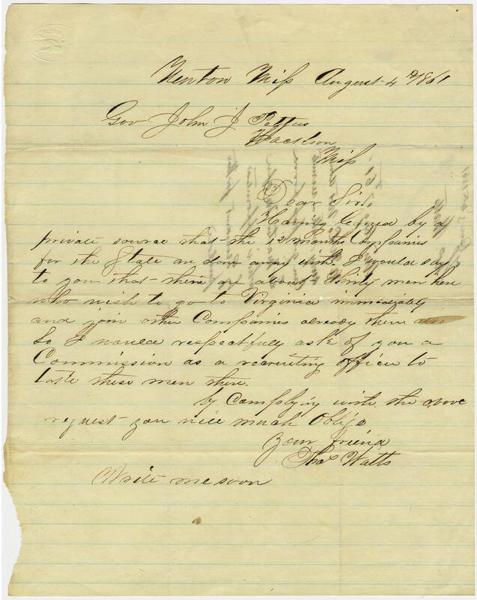 Newton Miss August 4th 1861
Gov John J Pettus
Jackson
Miss
Dear Sir
Having learned by a
private source that the 12 months Companies
for the State are done away with. I would say
to you that there are about thirty men here
who wish to go to Virginia immediately
and join other Companies already there
So I would respectfully ask of you a
Commission as a recruiting officer to
take these men there.
by Complying with the above
request you will much Oblige
Your friend
Thos Watts
Write me soon